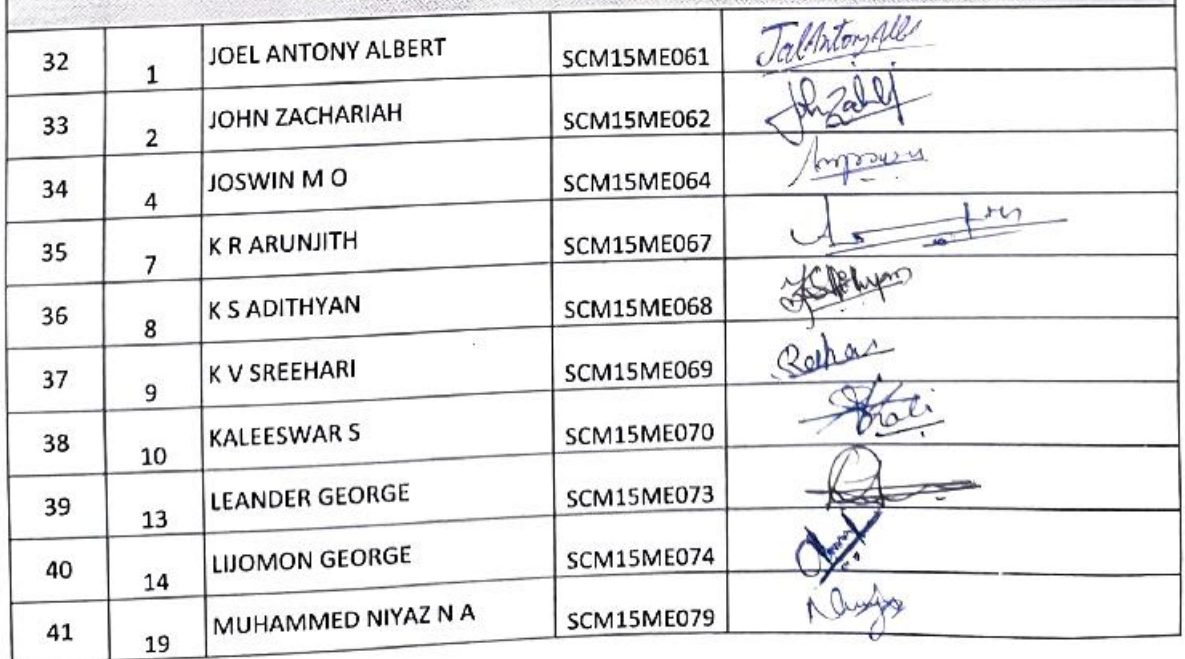 32 1 JOEL ANTONY ALBERT SCM15ME061
33 2 JOHN ZACHARIAH SCM15ME062
34 4 JOSWIN M O SCM15ME064
35 7 K R ARUNJITH SCM15ME067
36 8 K S ADITHYAN SCM15ME068
37 9 K V SREEHARI SCM15ME069
38 10 KALEESWAR S SCM15ME070
39 13 LEANDER GEORGE SCM15ME073
40 14 LIJOMON GEORGE SCM15ME074
41 19 MUHAMMED NIYAZ N A SCM15ME079